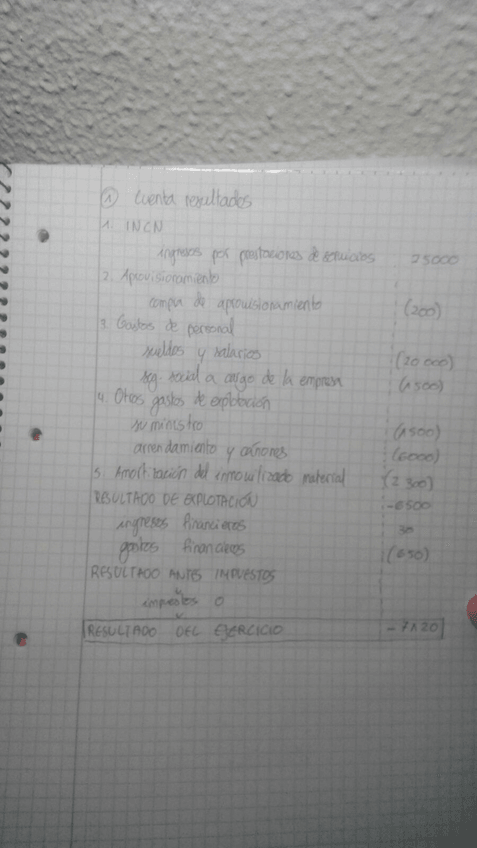 ① Cuenta resultados
1. INCN
ingresos por prestaciones de servicios 25000
2. Aprovisionamiento
compra de aprovisionamiento (200)
3. Gastos de personal
sueldos y salarios (20 000)
seg. social a cargo de la empresa (1500)
4. Otros gastos de explotación
suministro (1500)
arrendamiento y cánones (6000)
5. Amortización del inmovilizado material (2 300)
RESULTADO DE EXPLOTACIÓN -6500
ingresos financieros 30
gastos financieros (650)
RESULTADO ANTES IMPUESTOS
impuestos 0
RESULTADO DEL EJERCICIO -7120